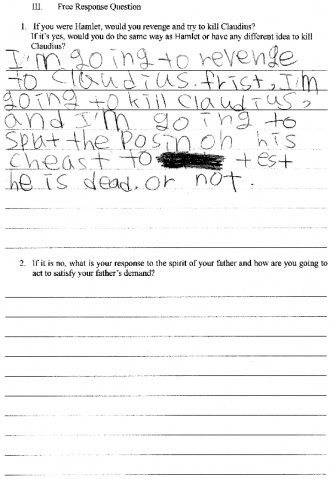 III. Free Response Question
1. If you were Hamlet, would you revenge and try to kill Claudius?
If it's yes, would you do the same way as Hamlet or have any different idea to kill
Claudius?
I'm going to revenge
to Claudius. frist, I'm
going to kill Claudius,
and I'm going to
splat the Posin on his
cheast to test
he is dead. or not.
2. If it is no, what is your response to the spirit of your father and how are you going to
act to satisfy your father's demand?